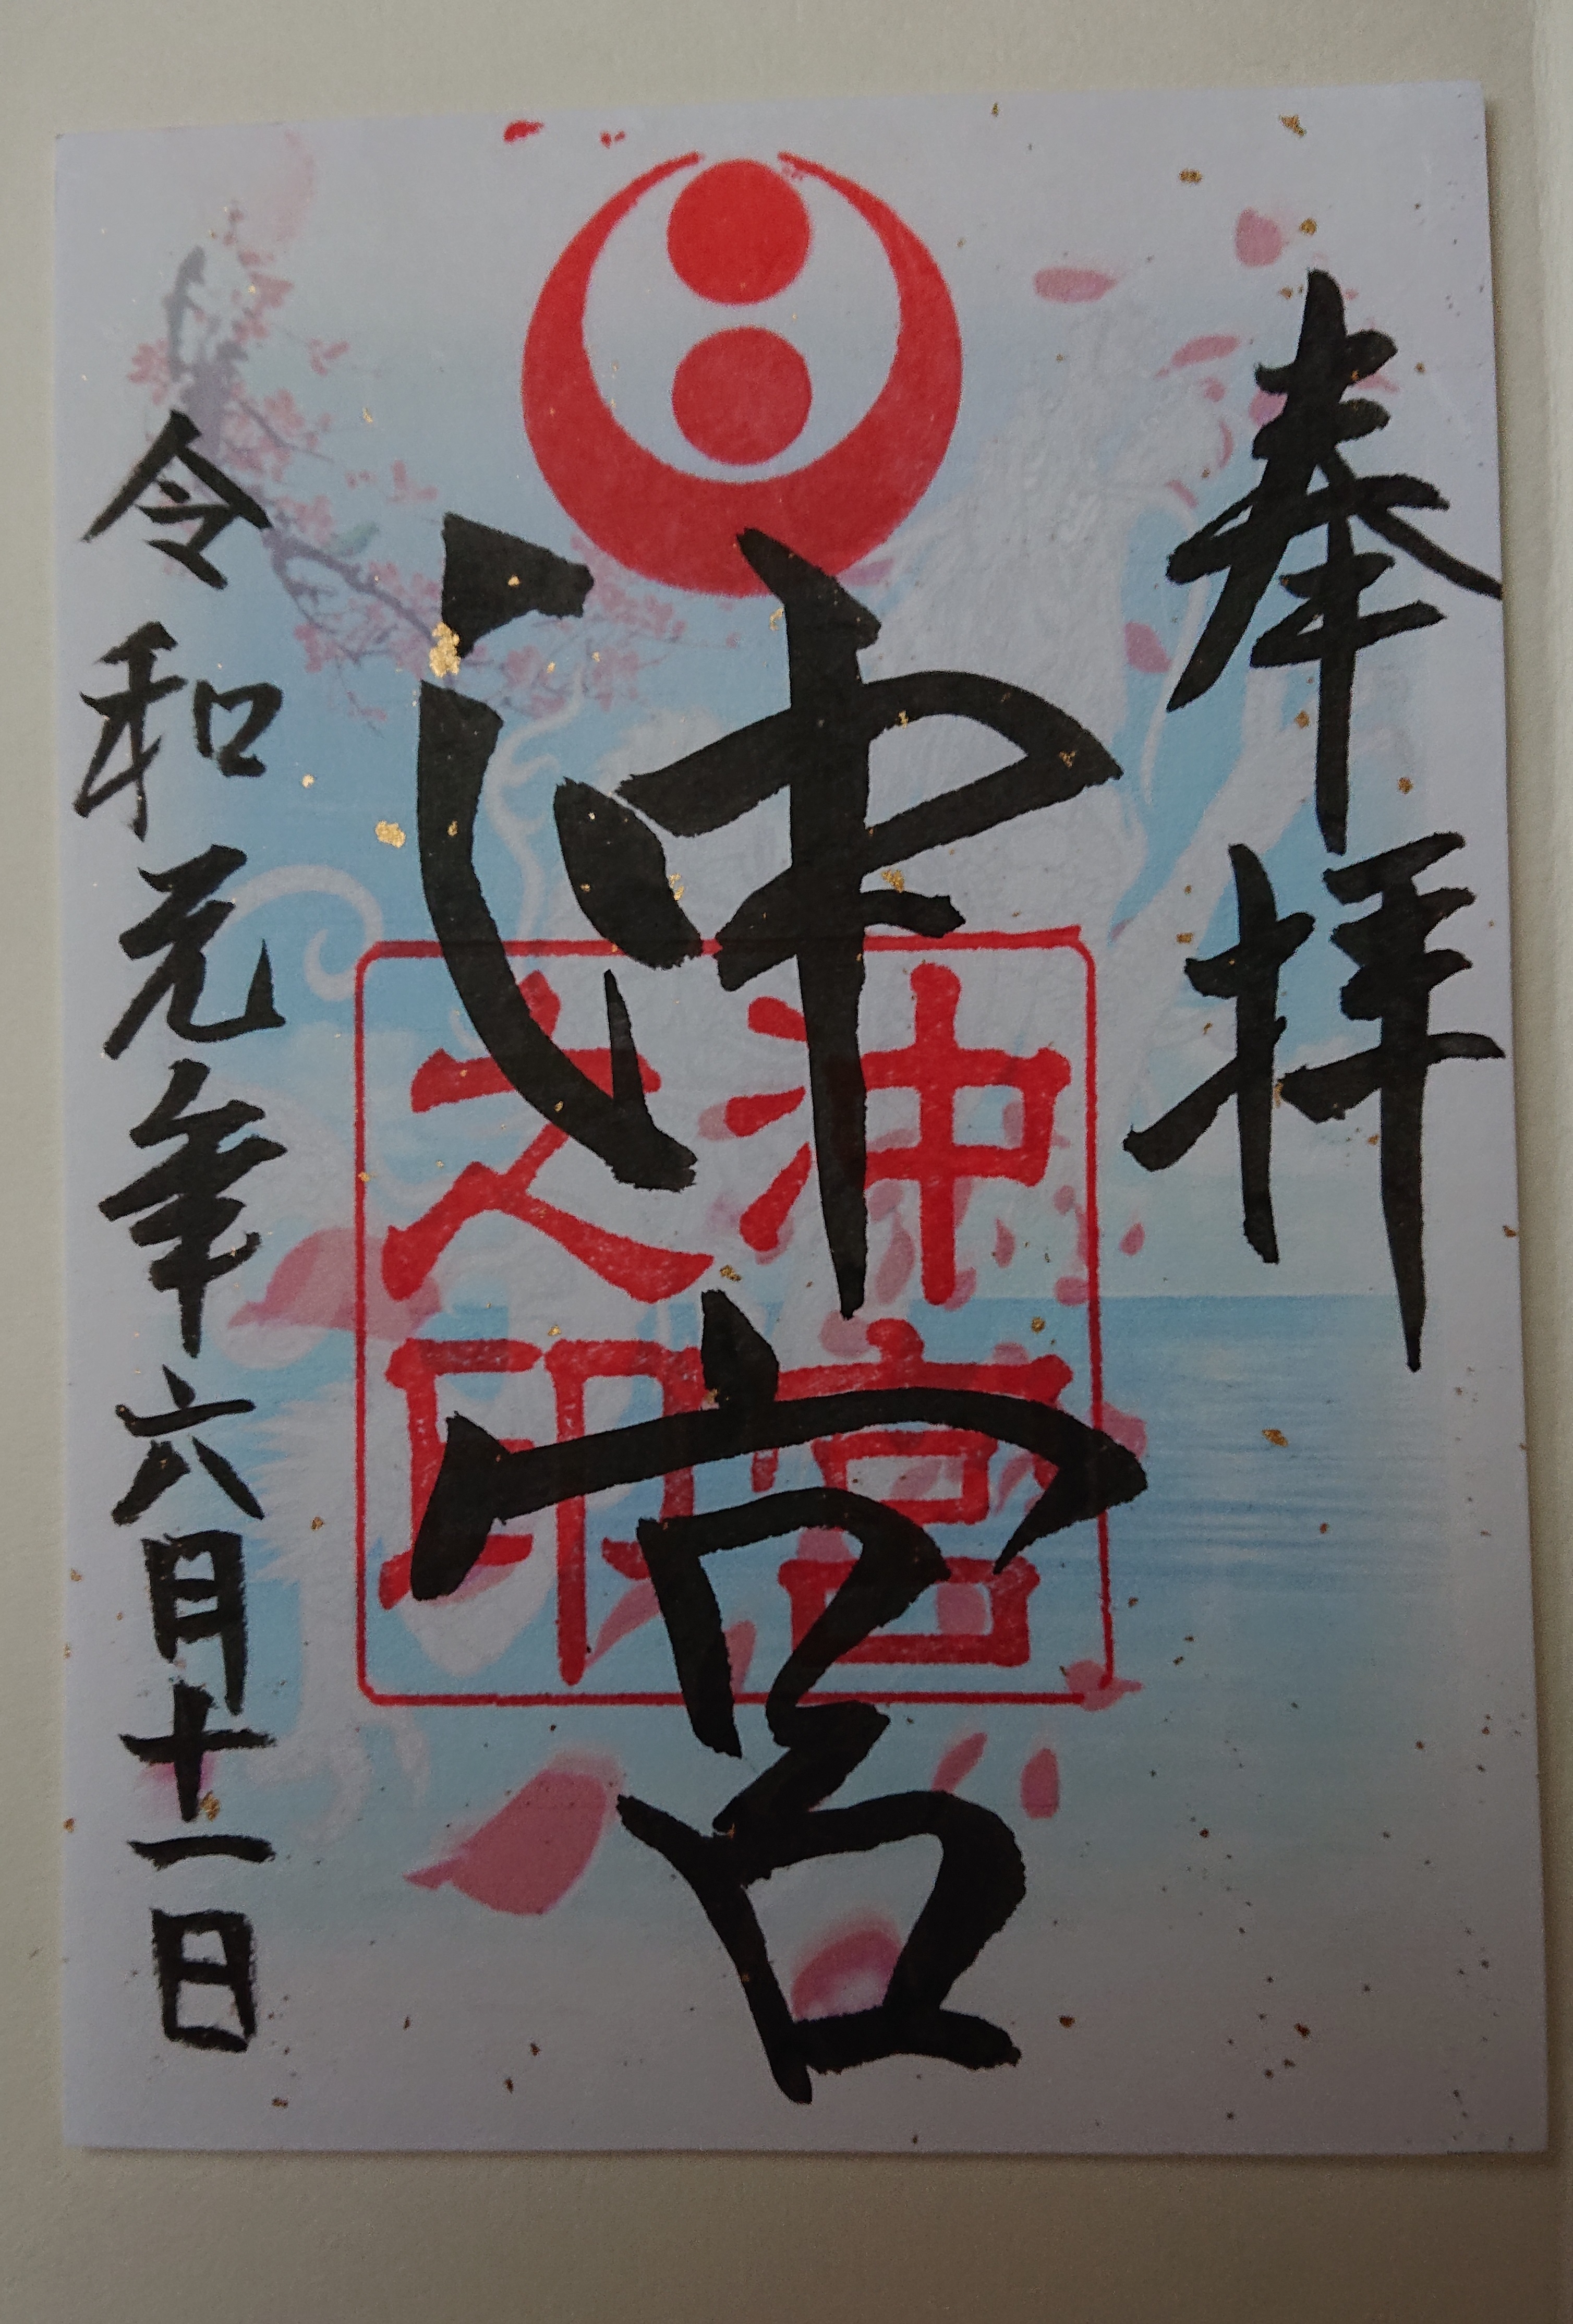 奉拝
沖宮
沖宮
之印
令和元年六月十一日